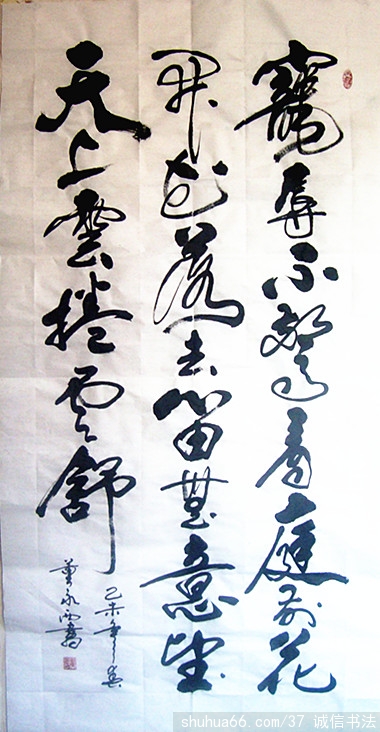 寵辱不驚看庭前花
開花落去留無意望
天上雲捲雲舒
己未年
shuhua66.com/37 诚信书法